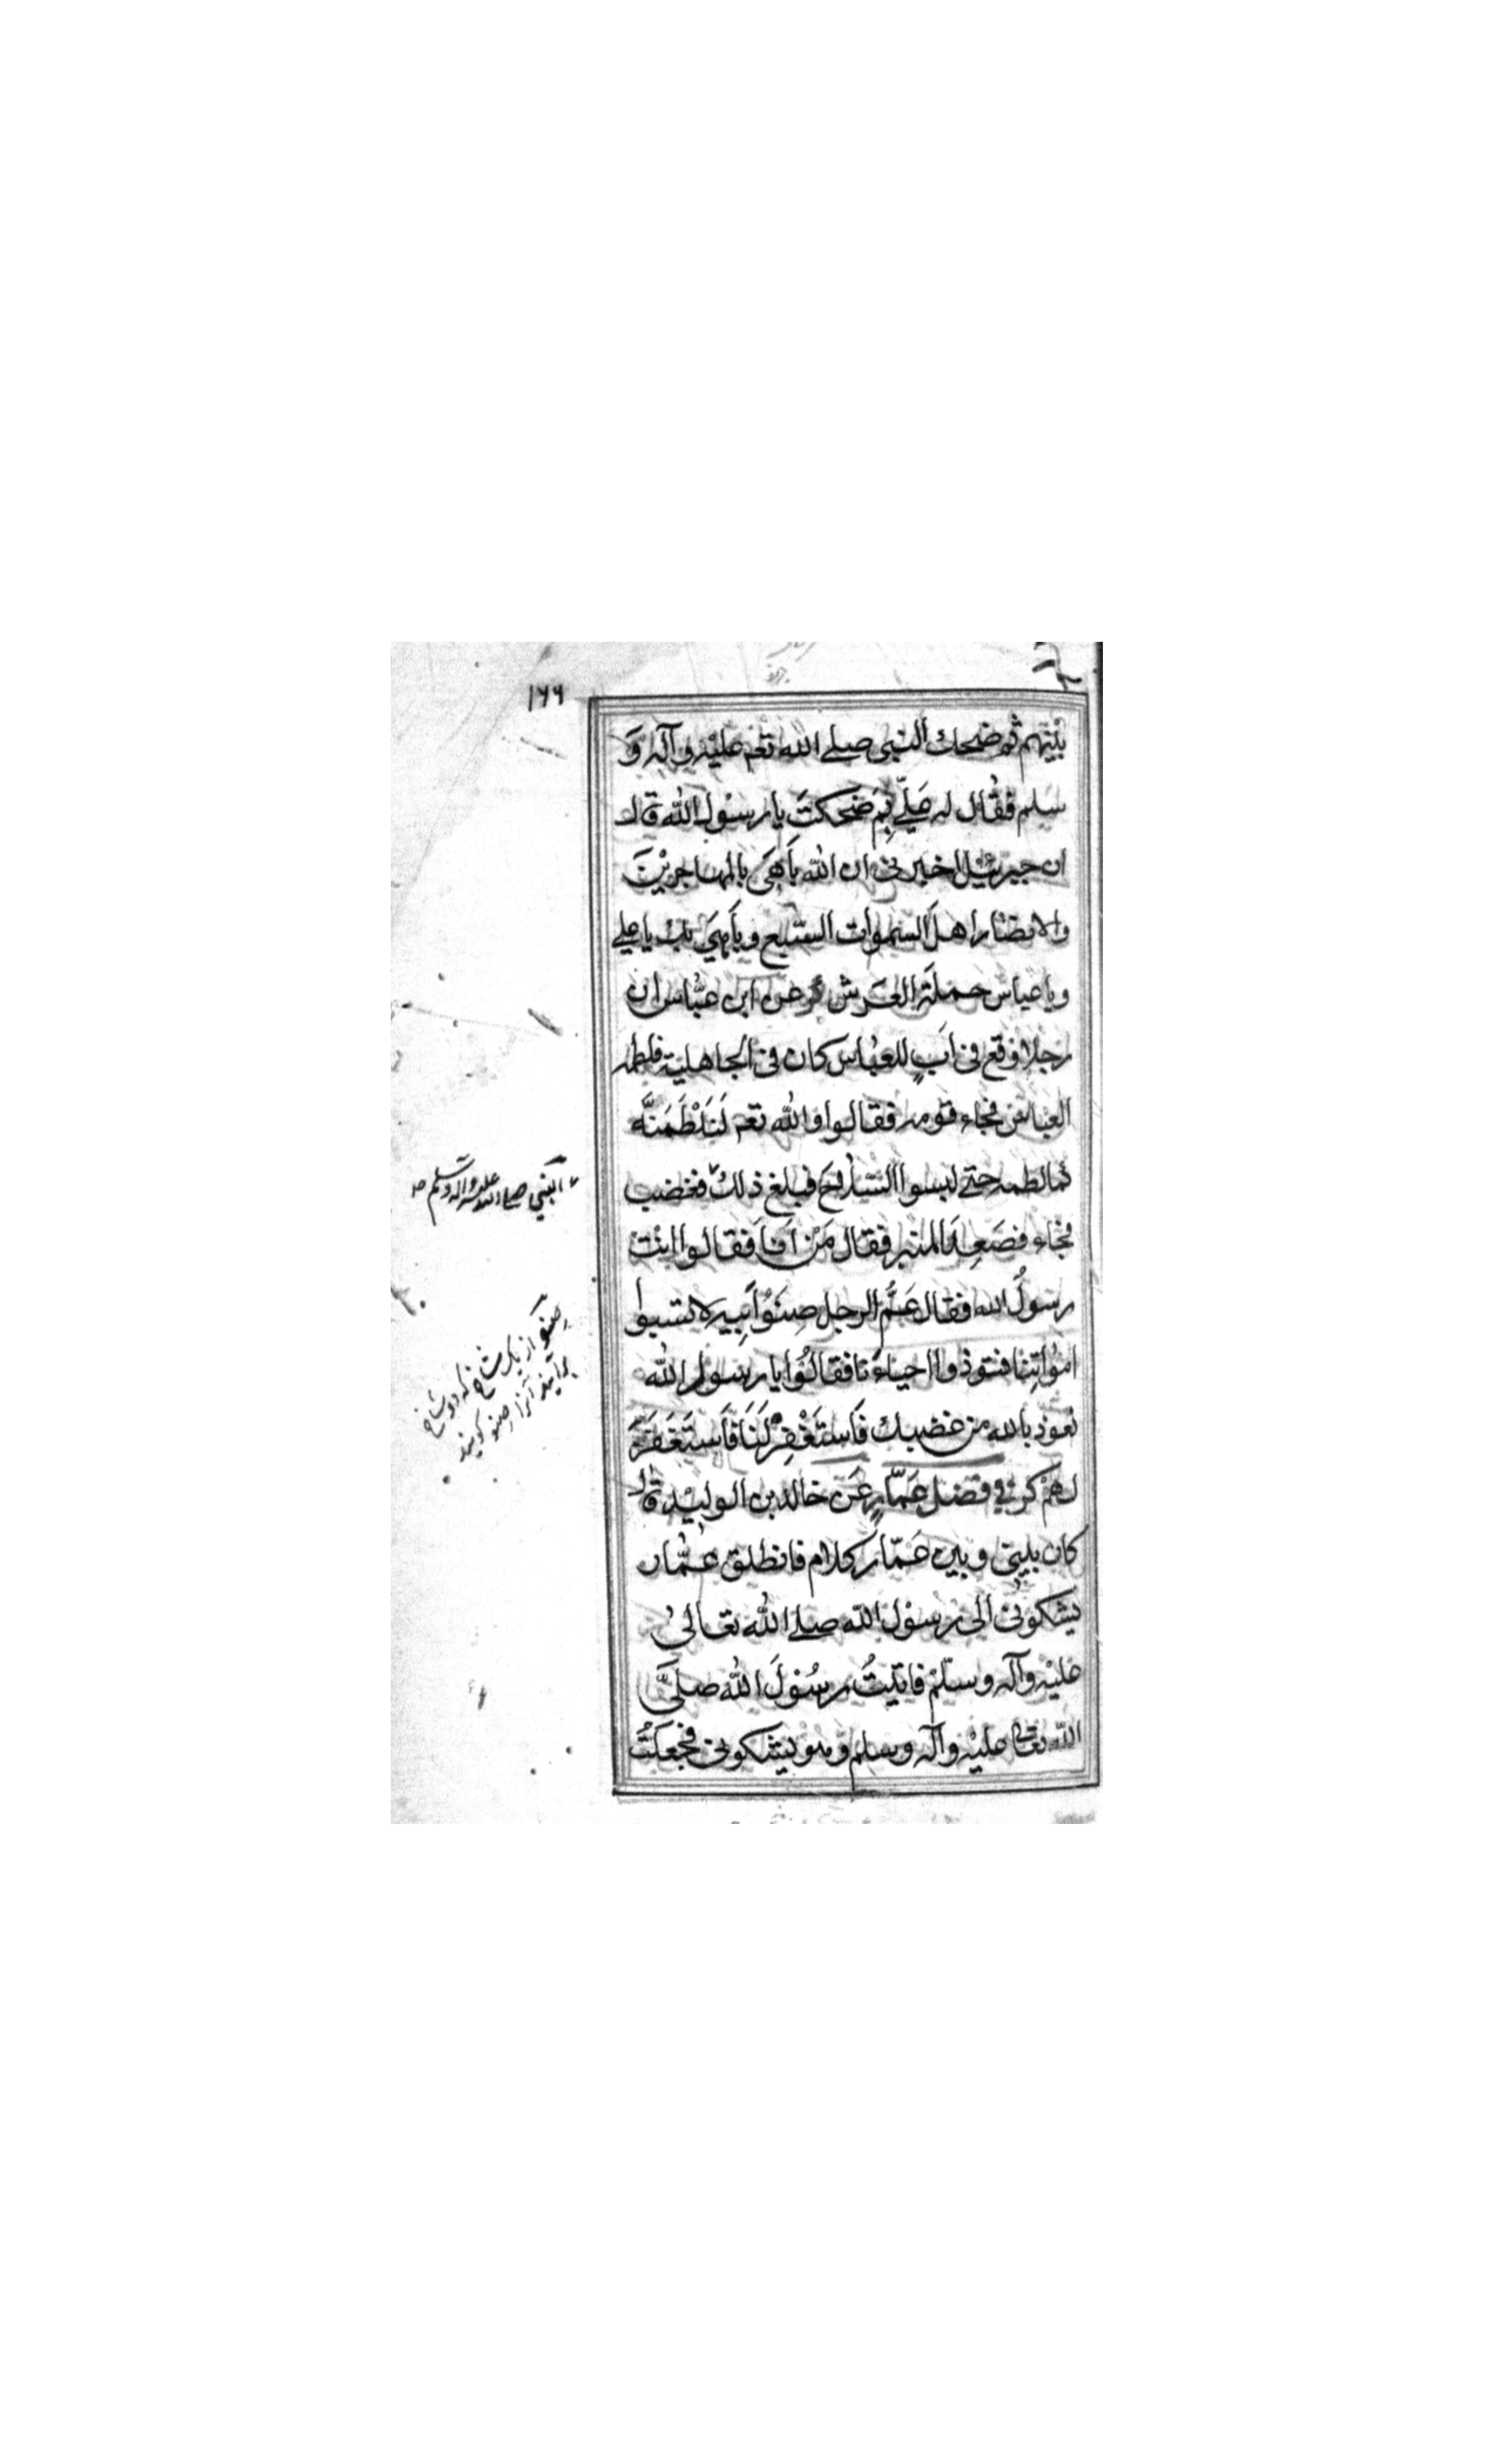 ۱۶۶
بَيْنِهم ثم ضحك النبی صلے الله تعم عليْه وآله وَ
سلم فقُال له عَلّي بِمَ ضحكتَ يا رسُول الله قال
ان جبرئيل اخبرنی ان الله بَاهَی بالمهاجريْنَ
والانصار اهلَ السموات السّبع وبَاهیَ بك يا علے
وبا عباس حملَةَ العَرش كر عن ابن عبّاس ان
رجلا وقع فی اَبٍ للعبُاس كان فی الجاهلية فلطمه
العباس فجاء قومه فقالوا والله تعم لَنَلْطَمَنَّه
كما لطمه حتے لبسوا السّلاح فبلغ ذلك فغضب
فجاء فصَعِدَ المنبر فقال مَنْ اَنَا فقالوا انْتَ
رسولُ الله فقال عَمُّ الرجل صِنوُ اَبيه لا تسبوا
امْواتنا فتوذوا احياءَنا فقالُوْا يا رسُول الله
نعوذ بالله من غضبك فَاستَغْفِرْ لَنَا فَاستَغفَرَ
لهمْ كر فی فضل عَمّارٍ عَن خالد بن الوليْد قال
كان بيني وبين عَمّار كلام فانطلق عَمّار
يشكونی الی رسول الله صلے الله تعالیٰ
عليْه وآله وسلّمْ فاتيتُ رسُوْلَ الله صلَّی
الله تعالی عليْه وآله وسلم وهو يشكونی فجَعَلتُ
النبي صلے الله عليه وآله وسلم
صِنْو از يك شاخ كه دو شاخ
برآيند آنرا صنو گويند